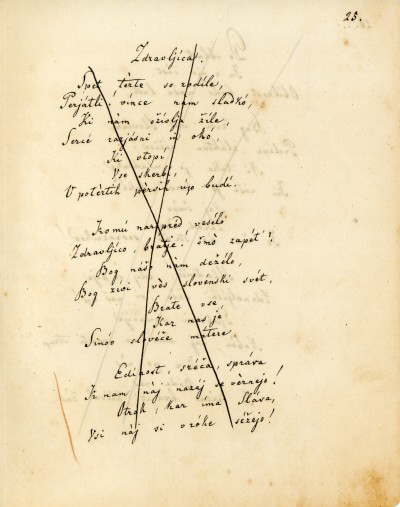 25.
Zdravljica.
Spet tèrte so rodile,
Perjátli! vince nam sladkó,
Ki nam oživlja žile,
Sercé razjásni in okó,
Ki vtopi
Vse skerbi,
V potèrtih pèrsih up budi.
Komú narpred veselo
Zdravljico, bratje! čmò zapét'!
Bog našo nam deželo,
Bog živi vès slovénski svét,
Bráte vse,
Kar nas je
Sinov slovéče mátere.
Edinost, sréča, správa
K' nam náj nazáj se vèrnejo!
Otrók, kar ima Sláva,
Vsi náj si v róke séžejo!